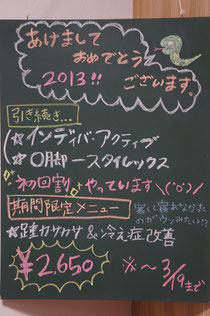 あけまして
おめでとう
2013!! ございます。
引き続き…
☆インディバ・アクティブ
☆O脚→スタイレックス
が初回割やっています\(^o^)/
期間限定メニュー
☆踵カサカサ&冷え症改善
寒くて寝れなかった
のがウソみたい!?
¥2,650
※〜3/19まで